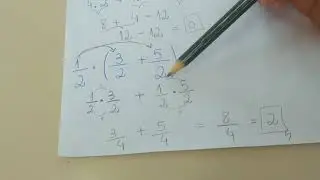 8 + 4 - 12
12 - 12 = 0
1/2 · (3/2 + 5/2)
1/2 · 3/2 + 1/2 · 5/2
3/4 + 5/4 = 8/4 = 2